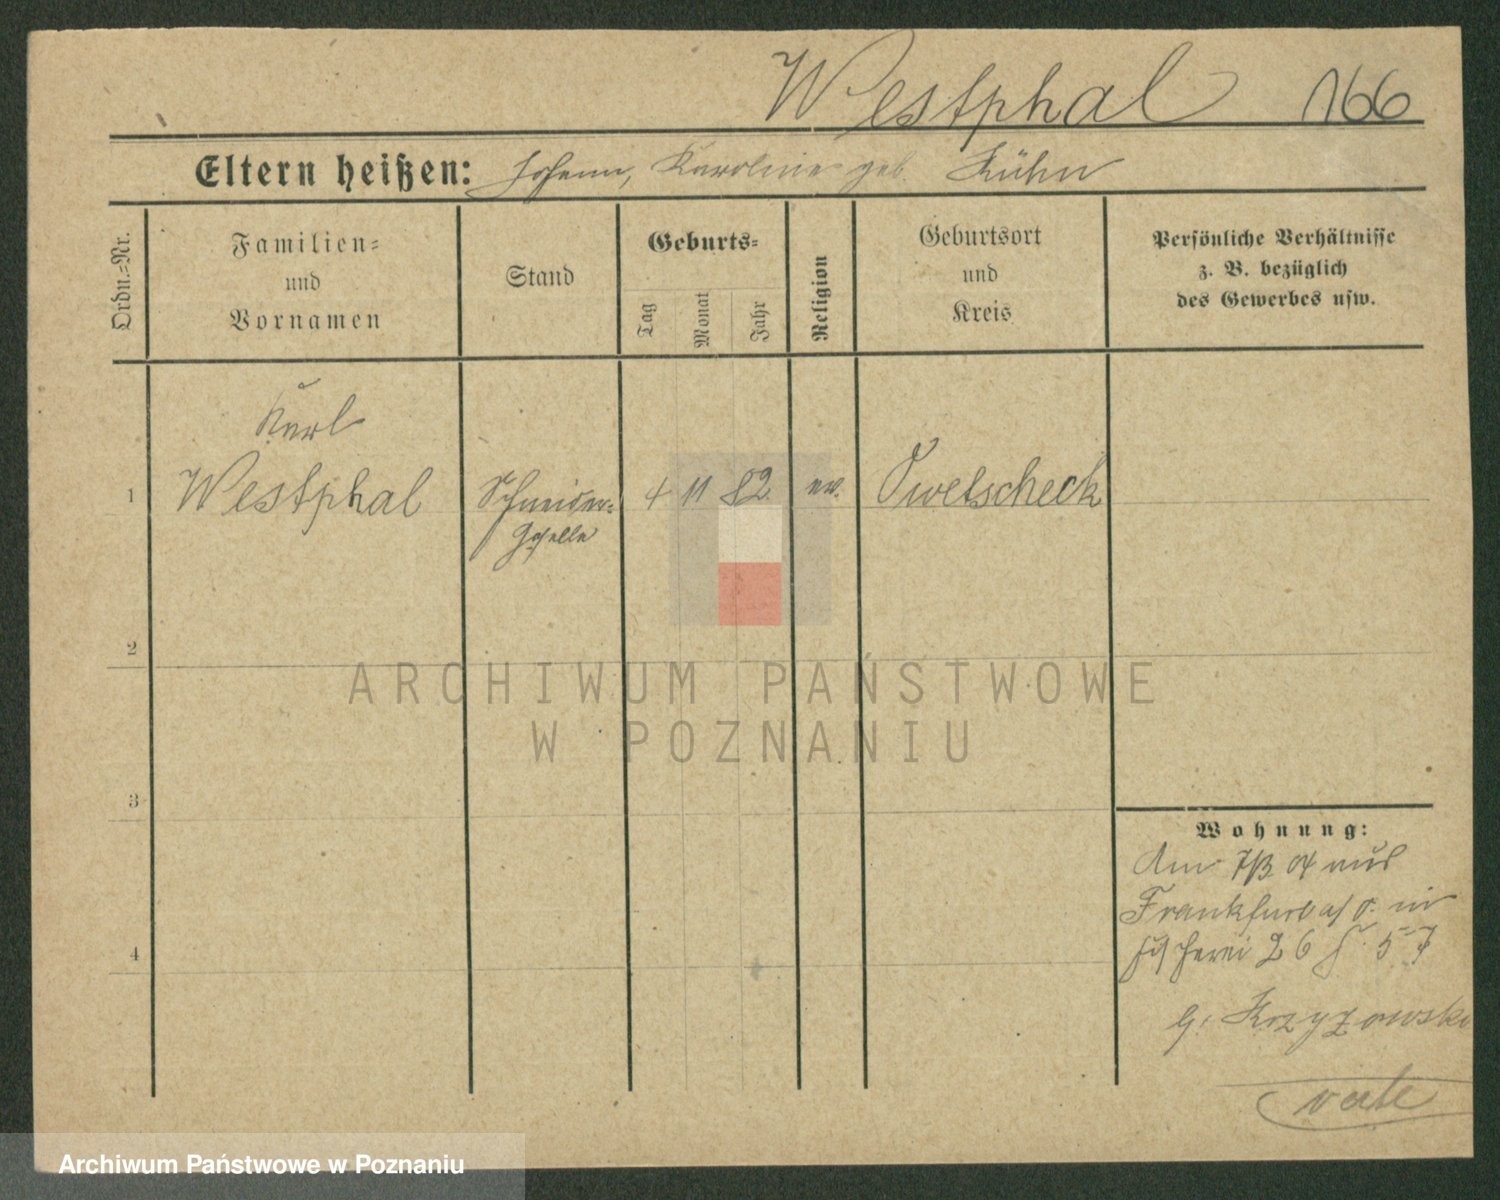 Westphal 166
Eltern heißen: Johann, Karoline geb. Kühn
Ordn.=Nr.
Familien=
und
Vornamen
Stand
Geburts=
Tag
Monat
Jahr
Religion
Geburtsort
und
Kreis
Persönliche Verhältnisse
z. B. bezüglich
des Gewerbes usw.
Karl
1 Westphal Schneider= 4 11 82 ev. Owetscheck
Geselle
2
3
4
Wohnung:
Am 7/3 04 aus
Frankfurt a/O. in
Fischerei 26 57
b: Krzyzowski
verte
ARCHIWUM PAŃSTWOWE
W POZNANIU
Archiwum Państwowe w Poznaniu